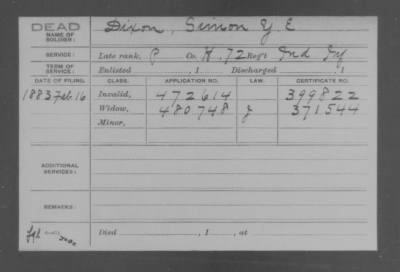 DEAD
NAME OF SOLDIER:
Dixon, Simon Y E
SERVICE:
Late rank, P Co. H, 72 Reg't Ind Inf
TERM OF SERVICE:
Enlisted , 1 Discharged , 1
DATE OF FILING. CLASS. APPLICATION NO. LAW. CERTIFICATE NO.
1883 Feb 16 Invalid, 472614 399822
Widow, 480748 371544
Minor,
ADDITIONAL SERVICES:
REMARKS:
Died , 1 , at